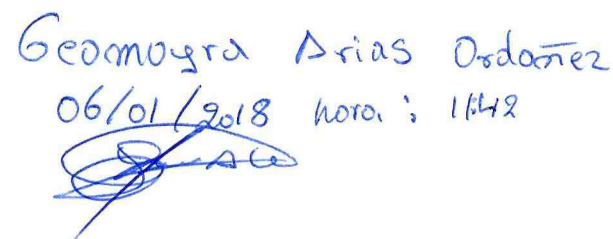 Geomayra Arias Ordoñez
06/01/2018 hora: 11:42